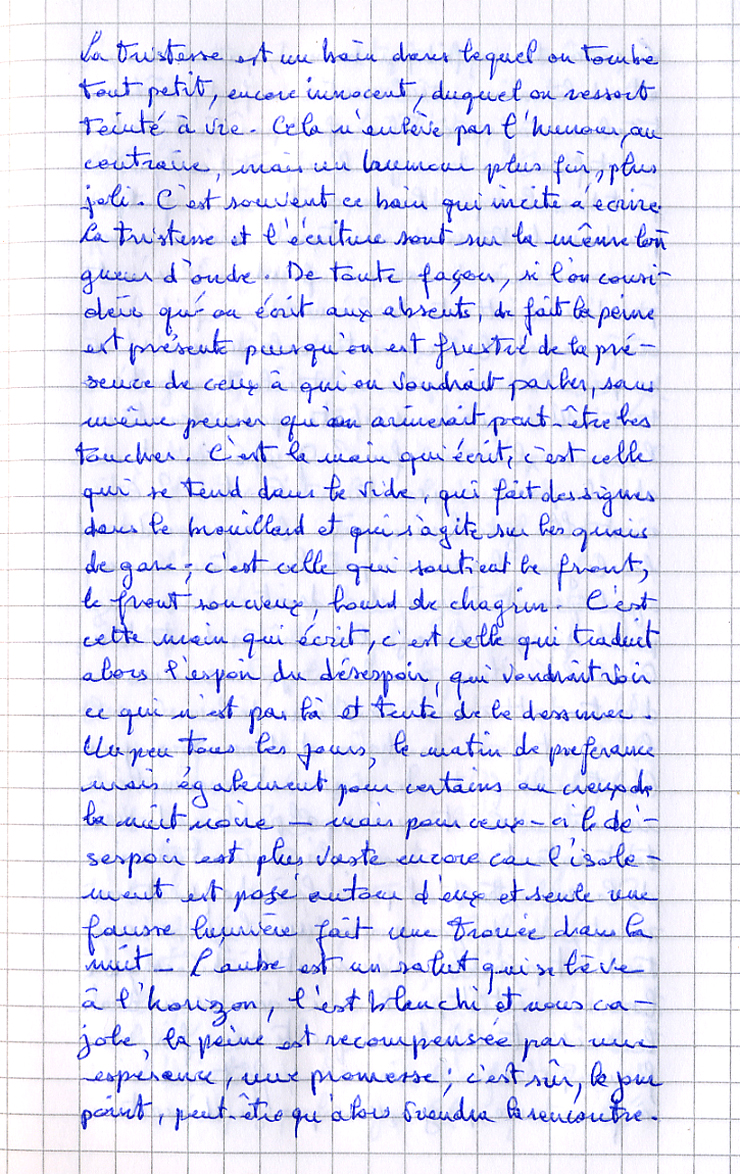 La tristesse est un bain dans lequel on tombe
tout petit, encore innocent, duquel on ressort
teinté à vie. Cela n'enlève pas l'humour, au
contraire, mais un humour plus fin, plus
joli. C'est souvent ce bain qui incite à écrire.
La tristesse et l'écriture sont sur la même lon
gueur d'onde. De toute façon, si l'on consi-
dère qu'on écrit aux absents, de fait la peine
est présente puisqu'on est frustré de la pré-
sence de ceux à qui on voudrait parler, sans
même penser qu'on aimerait peut-être les
toucher. C'est la main qui écrit, c'est celle
qui se tend dans le vide, qui fait des signes
dans le brouillard et qui s'agite sur les quais
de gare ; c'est celle qui soutient le front,
le front soucieux, lourd de chagrin. C'est
cette main qui écrit, c'est celle qui traduit
alors l'espoir du désespoir, qui voudrait voir
ce qui n'est pas là et tente de le dessiner.
Un peu tous les jours, le matin de preferance
mais également pour certains au creux de
la nuit noire — mais pour ceux-ci le dé-
sespoir est plus vaste encore car l'isole-
ment est posé autour d'eux et seule une
fausse lumière fait une trouée dans la
nuit - L'aube est un salut qui se lève
à l'horizon, l'est blanchi et nous ca-
jole, la peine est recompensée par une
esperance, une promesse ; c'est sûr, le jour
point, peut-être qu'alors viendra la rencontre.